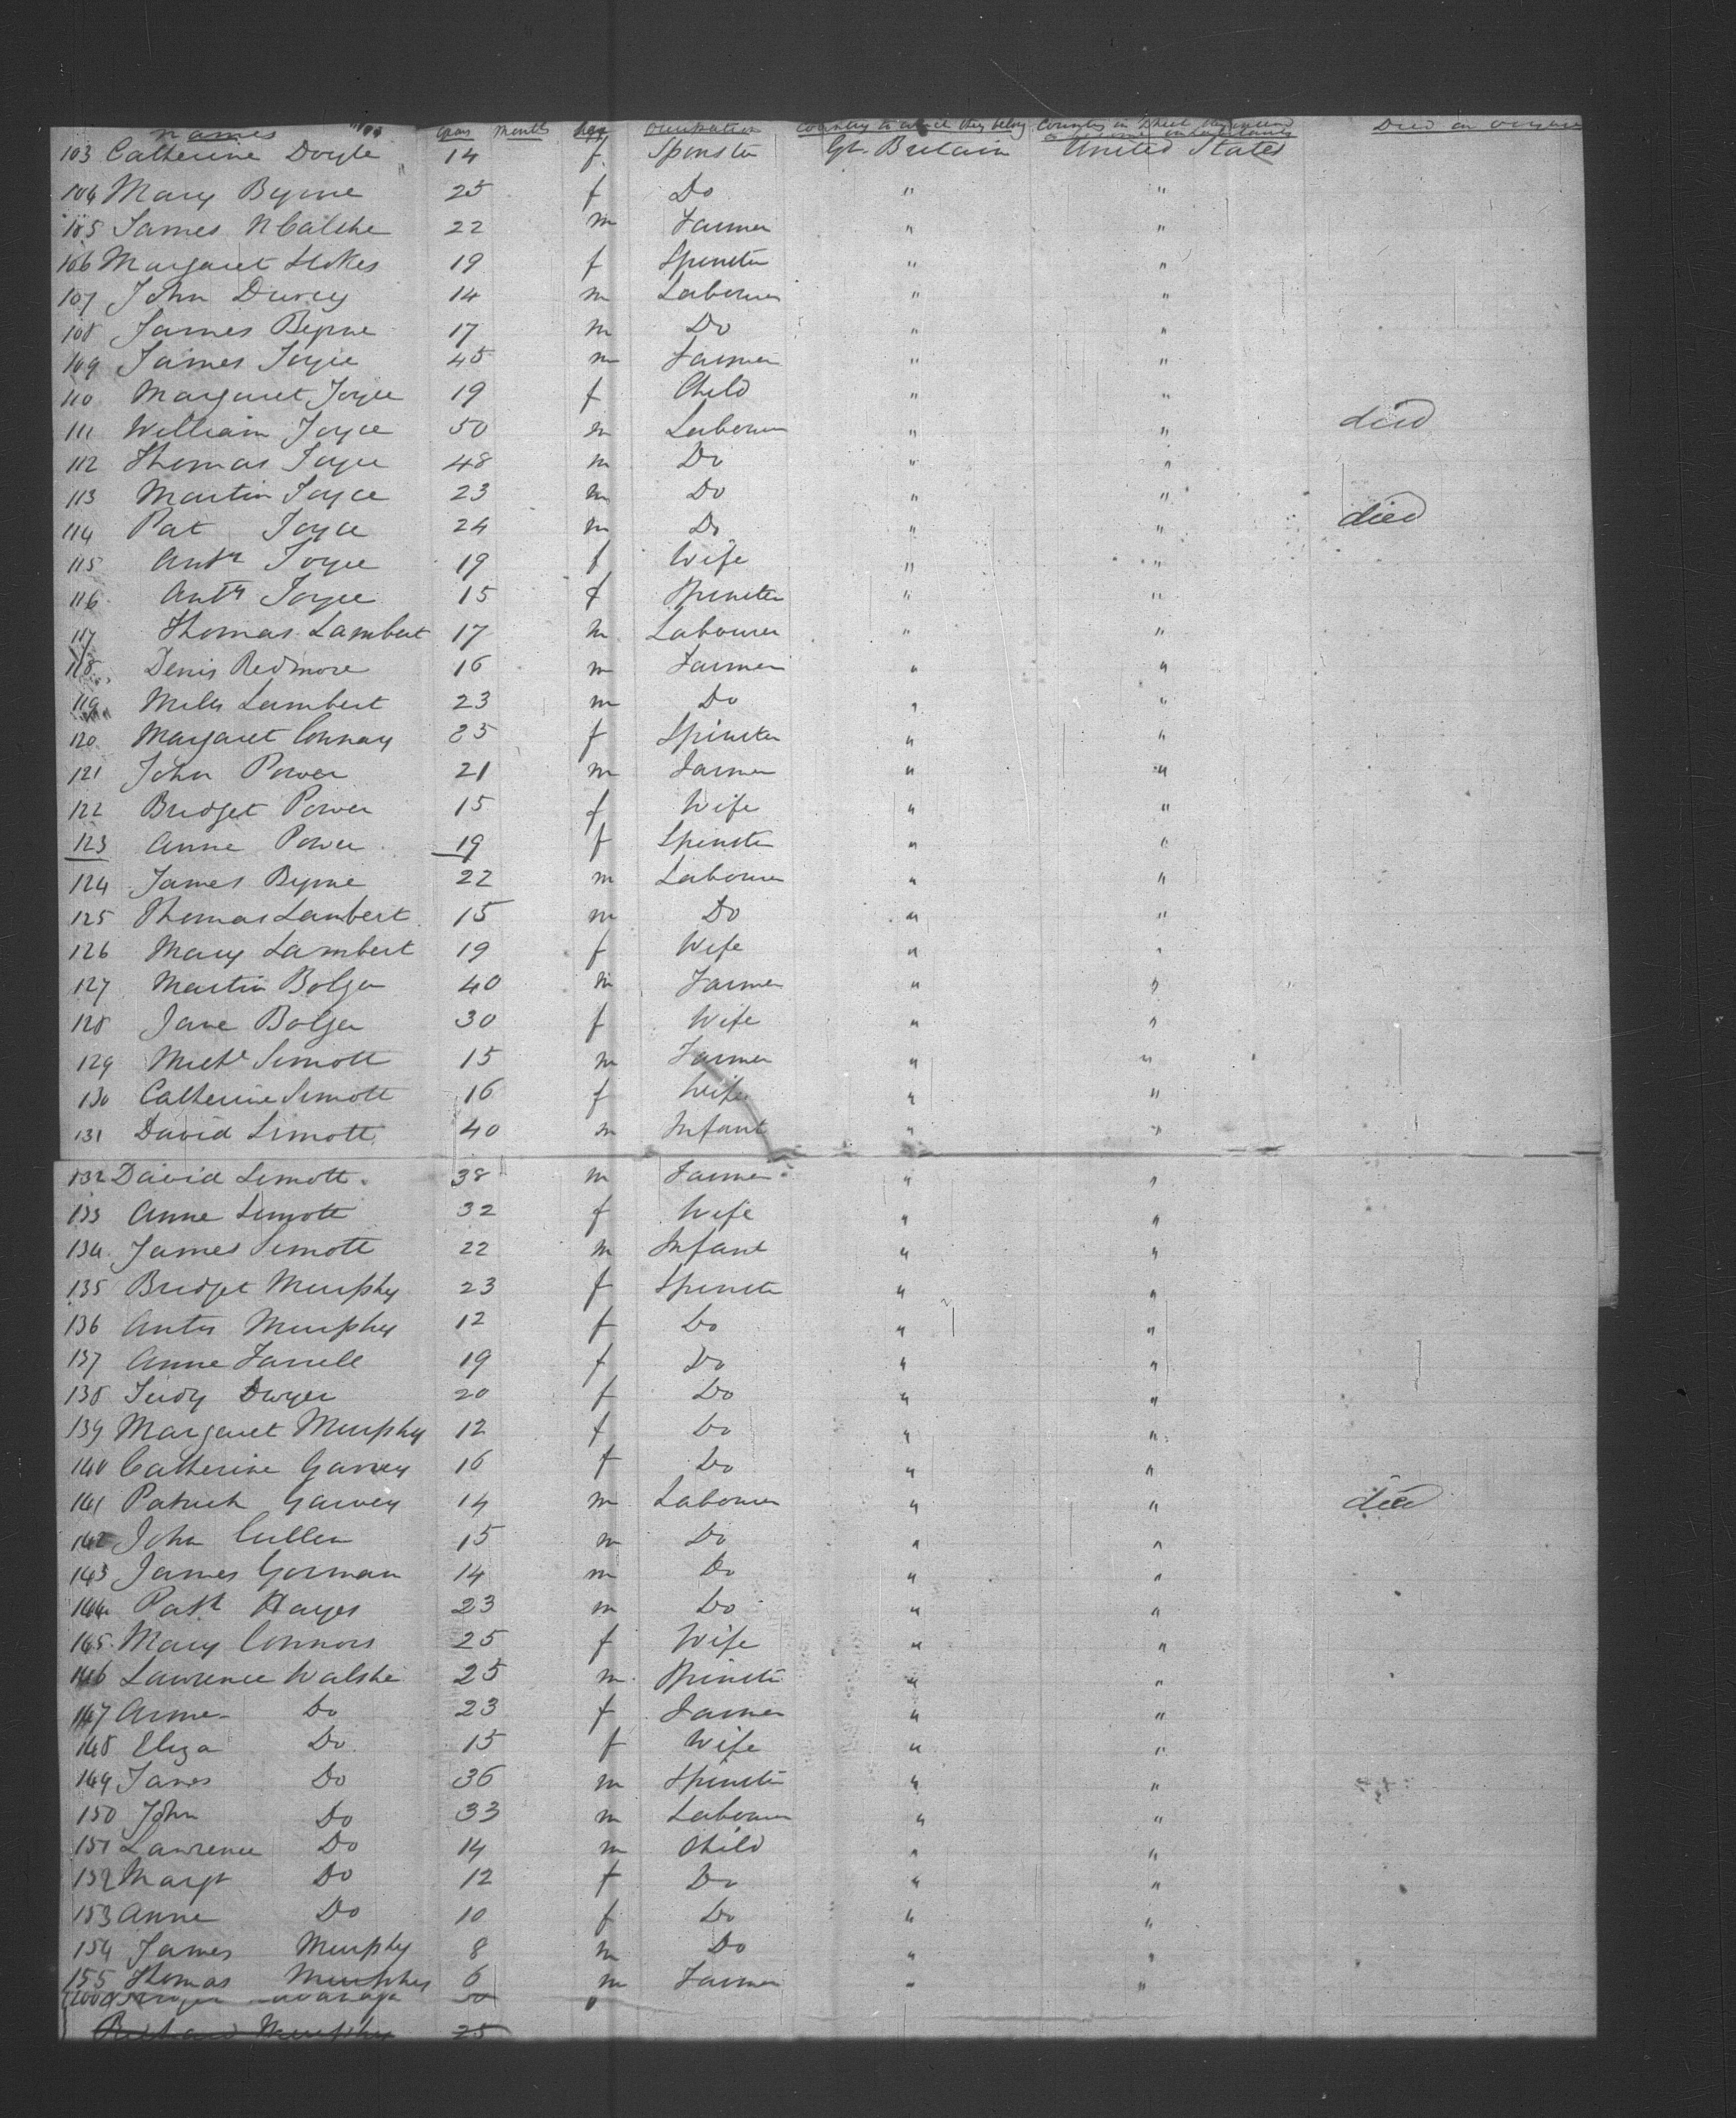 names years months sex occupation Country to which they belong Country in which they intend to become inhabitants Died on voyage
103 Catherine Doyle 14 f Spinster Gt. Britain United States
104 Mary Byrne 25 f Do " "
105 James 22 m Farmer " "
106 Margaret Stokes 19 f Spinster " "
107 John 14 m Labourer " "
108 James Byrne 17 m Do " "
109 James Joyce 45 m Farmer " "
110 Margaret Joyce 19 f Child " "
111 William Joyce 50 m Labourer " " died
112 Thomas Joyce 48 m Do " "
113 Martin Joyce 23 m Do " "
114 Pat Joyce 24 m Do " " died
115 Anty Joyce 19 f Wife " "
116 Anty Joyce 15 f Spinster " "
117 Thomas Lambert 17 m Labourer " "
118 Denis Redmore 16 m Farmer " "
119 Miles Lambert 23 m Do " "
120 Margaret Connay 25 f Spinster " "
121 John Power 21 m Farmer " "
122 Bridget Power 15 f Wife " "
123 Anne Power 19 f Spinster " "
124 James Byrne 22 m Labourer " "
125 Thomas Lambert 15 m Do " "
126 Mary Lambert 19 f Wife " "
127 Martin Bolger 40 m Farmer " "
128 Jane Bolger 30 f Wife " "
129 Michl Sinnott 15 m Farmer " "
130 Catherine Sinnott 16 f Wife " "
131 David Sinnott 40 m Infant " "
132 David Sinnott 38 m Farmer " "
133 Anne Sinnott 32 f Wife " "
134 James Sinnott 22 m Infant " "
135 Bridget Murphy 23 f Spinster " "
136 Murphy 12 f Do " "
137 Anne Farrell 19 f Do " "
138 Judy Dwyer 20 f Do " "
139 Margaret Murphy 12 f Do " "
140 Catherine Garvey 16 f Do " "
141 Patrick Garvey 14 m Labourer " " died
142 John Cullen 15 m Do " "
143 James Gorman 14 m Do " "
144 Patk Hayes 23 m Do " "
145 Mary Connors 25 f Wife " "
146 Lawrence Walshe 25 m Spinster " "
147 Anne Do 23 f Farmer " "
148 Eliza Do 15 f Wife " "
149 James Do 36 m Spinster " "
150 John Do 33 m Labourer " "
151 Lawrence Do 14 m Child " "
152 Margt Do 12 f Do " "
153 Anne Do 10 f Do " "
154 James Murphy 8 m Do " "
155 Thomas Murphy 6 m Farmer " "
Murphy 25